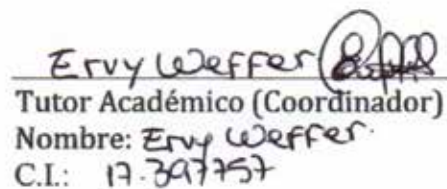 Ervy Weffer
Tutor Académico (Coordinador)
Nombre: Ervy Weffer.
C.I.: 17.397757